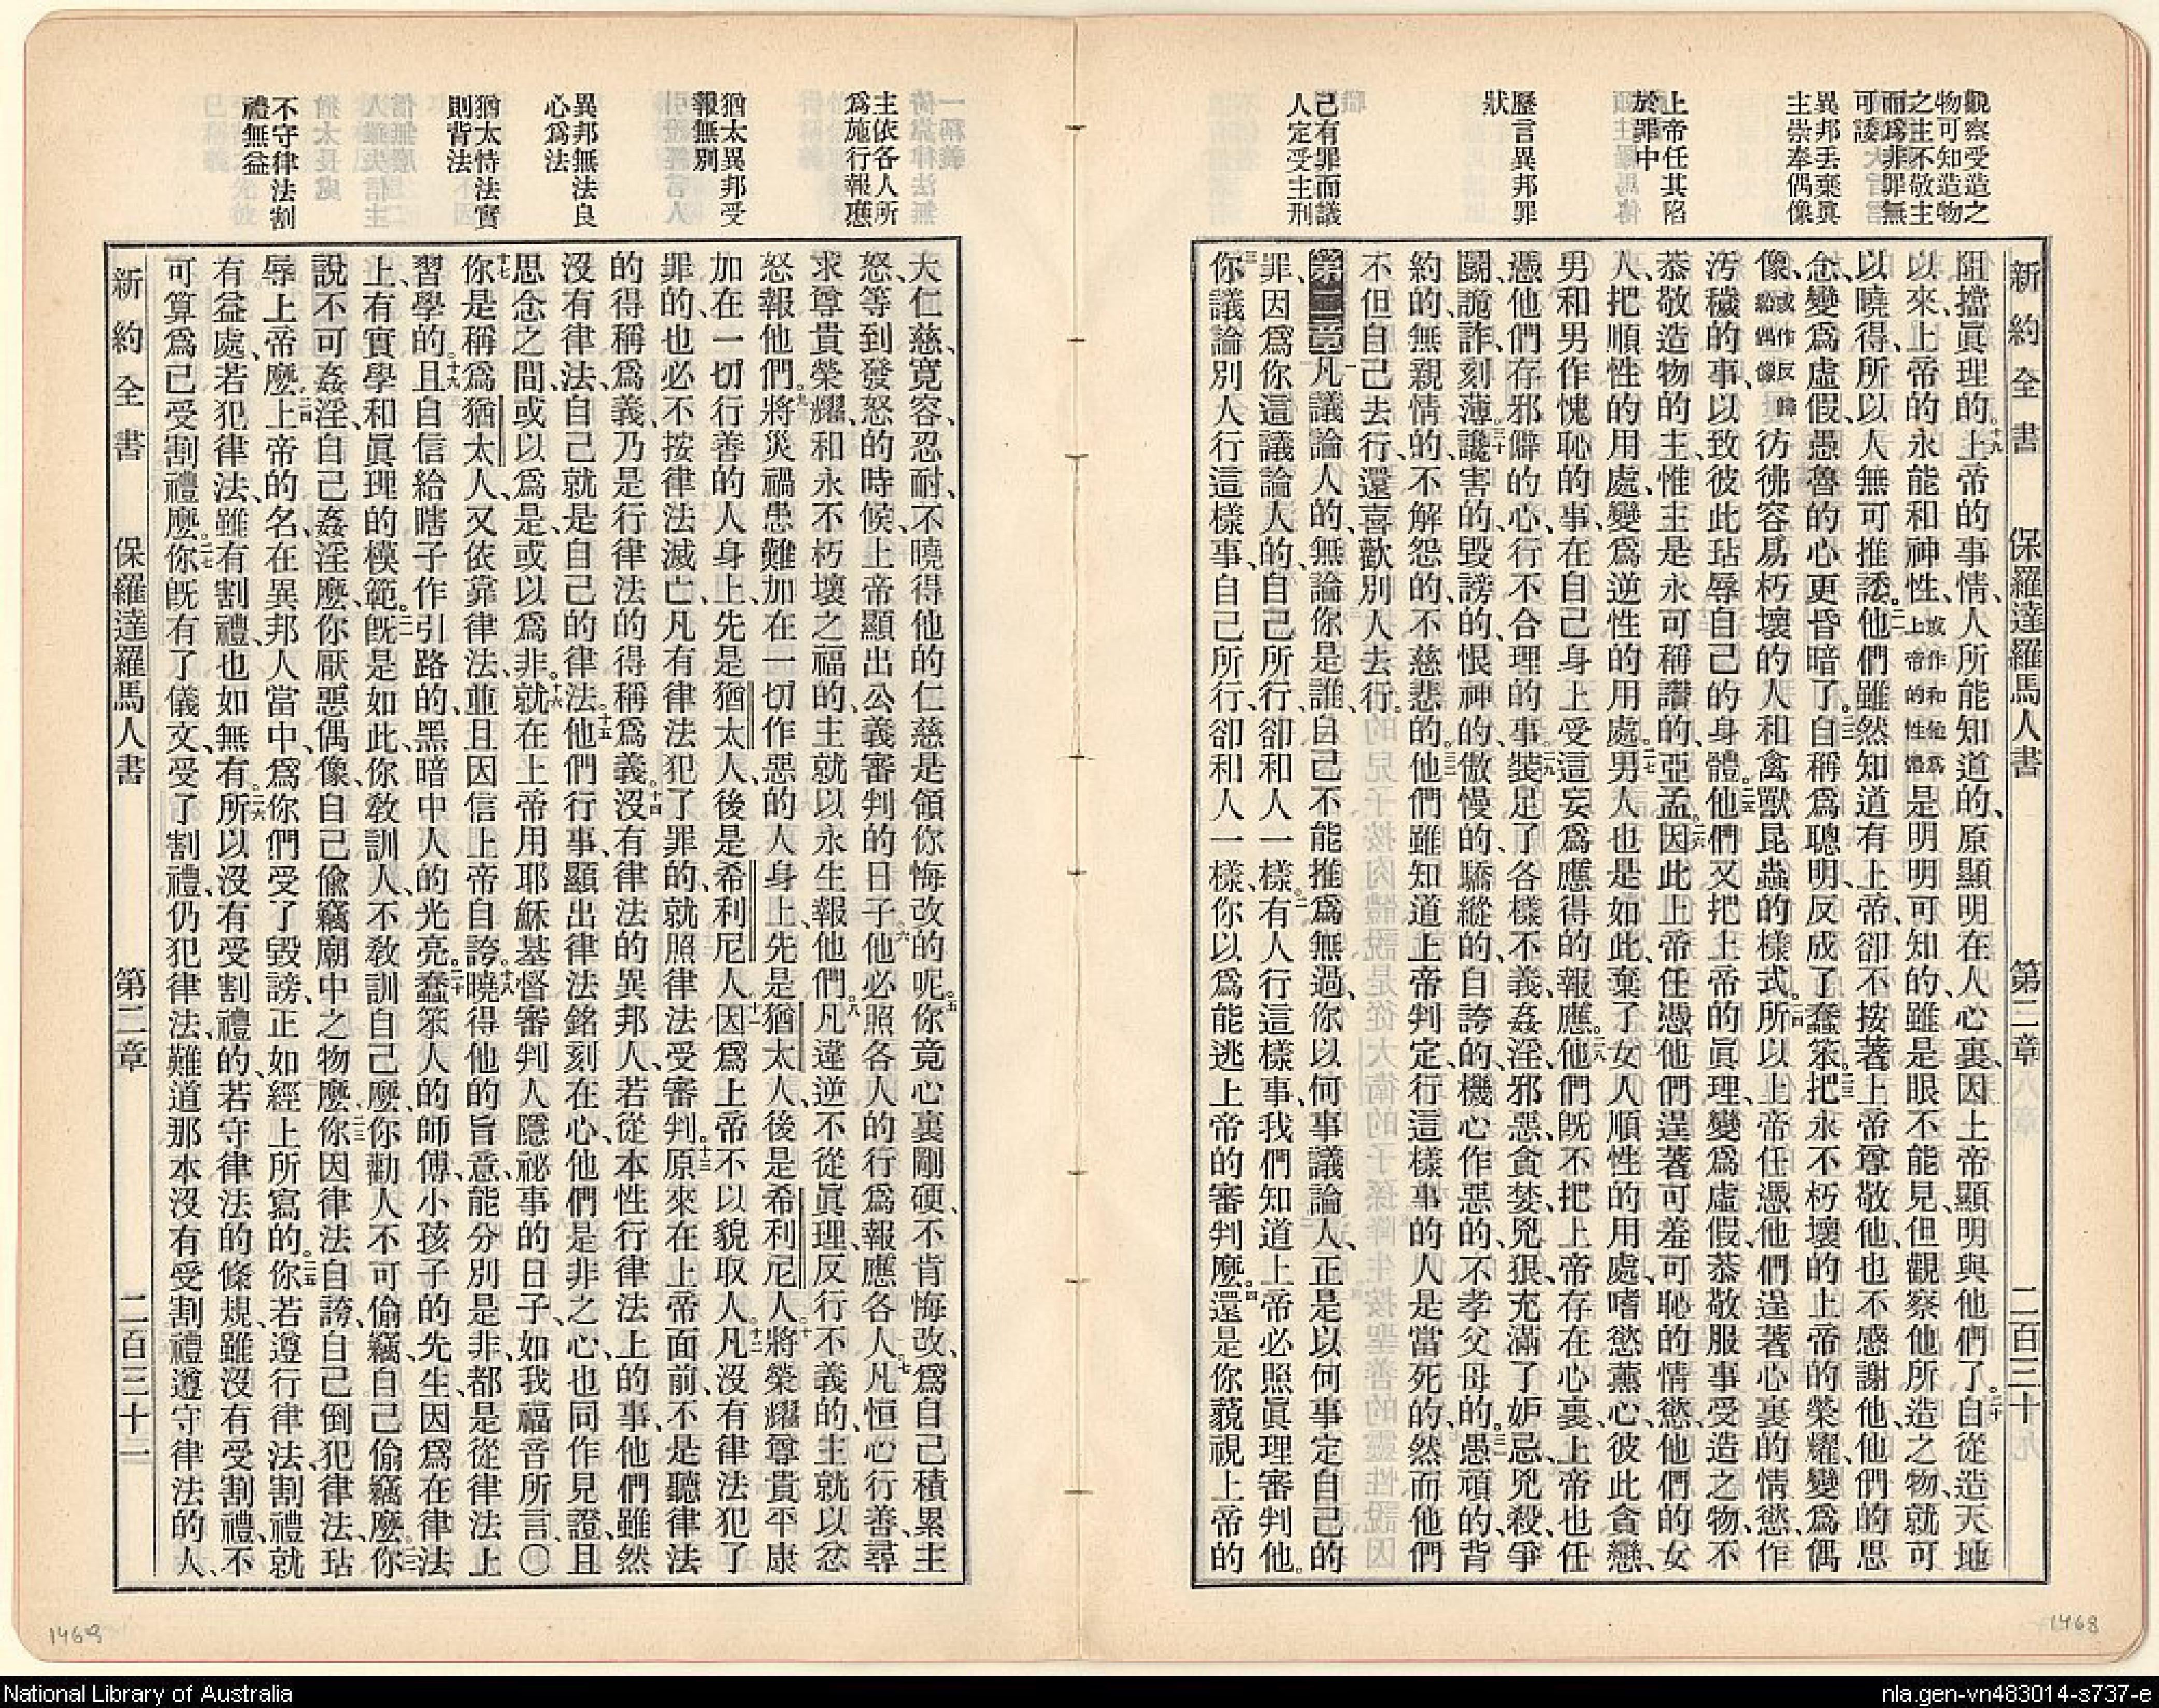 新約全書 保羅達羅馬人書 第二章 二百三十
觀察受造之
物可知造物
之主不敬主
而爲非罪無
可諉
異邦丟棄眞
主崇奉偶像
上帝任其陷
於罪中
歷言異邦罪
狀
己有罪而議
人定受主刑
阻擋眞理的。十九上帝的事情、人所能知道的、原顯明在人心裏、因上帝顯明與他們了。二十自從造天地
以來、上帝的永能和神性、或作和他爲上帝的性體是明明可知的、雖是眼不能見、但觀察他所造之物、就可
以曉得、所以人無可推諉。二一他們雖然知道有上帝、卻不按著上帝尊敬他、也不感謝他、他們的思
念、變爲虛假、愚魯的心更昏暗了。二二自稱爲聰明、反成了蠢笨。二三把永不朽壞的上帝的榮耀、變爲偶
像、或作反歸給偶像彷彿容易朽壞的人和禽獸昆蟲的樣式。二四所以上帝任憑他們逞著心裏的情慾、作
汚穢的事、以致彼此玷辱自己的身體。二五他們又把上帝的眞理、變爲虛假、恭敬服事受造之物、不
恭敬造物的主、惟主是永可稱讚的、亞孟。二六因此上帝任憑他們逞著可羞可恥的情慾、他們的女
人、把順性的用處、變爲逆性的用處。二七男人也是如此、棄了女人順性的用處、嗜慾薰心、彼此貪戀、
男和男作愧恥的事、在自己身上受這妄爲應得的報應。二八他們旣不把上帝存在心裏、上帝也任
憑他們存邪僻的心、行不合理的事。二九裝足了各樣不義、姦淫、邪惡、貪婪、兇狠、充滿了妒忌、兇殺、爭
鬭、詭詐、刻薄。三十讒害的、毀謗的、恨神的、傲慢的、驕縱的、自誇的、機心作惡的、不孝父母的。三一愚頑的、背
約的、無親情的、不解怨的、不慈悲的。三二他們雖知道上帝判定、行這樣事的人是當死的、然而他們
不但自己去行、還喜歡別人去行。
第二章一凡議論人的、無論你是誰、自己不能推爲無過、你以何事議論人、正是以何事定自己的
罪、因爲你這議論人的、自己所行、卻和人一樣。二有人行這樣事、我們知道上帝必照眞理審判他。
三你議論別人行這樣事、自己所行、卻和人一樣、你以爲能逃上帝的審判麼。四還是你藐視上帝的
1468
主依各人所
爲施行報應
猶太異邦受
報無別
異邦無法良
心爲法
猶太恃法實
則背法
不守律法割
禮無益
大仁慈、寬容、忍耐、不曉得他的仁慈是領你悔改的呢。五你竟心裏剛硬、不肯悔改、爲自己積累主
怒、等到發怒的時候、上帝顯出公義審判的日子。六他必照各人的行爲、報應各人。七凡恒心行善、尋
求尊貴榮耀、和永不朽壞之福的、主就以永生報他們。八凡違逆不從眞理、反行不義的、主就以忿
怒報他們。九將災禍患難、加在一切作惡的人身上、先是猶太人、後是希利尼人。十將榮耀尊貴平康
加在一切行善的人身上、先是猶太人、後是希利尼人。十一因爲上帝不以貌取人。十二凡沒有律法犯了
罪的、也必不按律法滅亡、凡有律法犯了罪的、就照律法受審判。十三原來在上帝面前、不是聽律法
的得稱爲義、乃是行律法的得稱爲義。十四沒有律法的異邦人、若從本性行律法上的事、他們雖然
沒有律法、自己就是自己的律法。十五他們行事、顯出律法銘刻在心、他們是非之心、也同作見證、且
思念之間、或以爲是、或以爲非。十六就在上帝用耶穌基督審判人隱祕事的日子、如我福音所言、〇
十七你是稱爲猶太人、又依靠律法、並且因信上帝自誇。十八曉得他的旨意、能分別是非、都是從律法上
習學的。十九且自信給瞎子作引路的、黑暗中人的光亮。二十蠢笨人的師傅、小孩子的先生、因爲在律法
上、有實學和眞理的模範。二一旣是如此、你敎訓人、不敎訓自己麼、你勸人不可偷竊、自己偷竊麼。二二你
說不可姦淫、自己姦淫麼、你厭惡偶像、自己偸竊廟中之物麼。二三你因律法自誇、自己倒犯律法、玷
辱上帝麼。二四上帝的名、在異邦人當中、爲你們受了毀謗、正如經上所寫的。二五你若遵行律法、割禮就
有益處、若犯律法、雖有割禮、也如無有。二六所以沒有受割禮的、若守律法的條規、雖沒有受割禮、不
可算爲已受割禮麼。二七你旣有了儀文、受了割禮、仍犯律法、難道那本沒有受割禮遵守律法的人、
新約全書 保羅達羅馬人書 第二章 二百三十一
1469
National Library of Australia
nla.gen-vn483014-s737-e